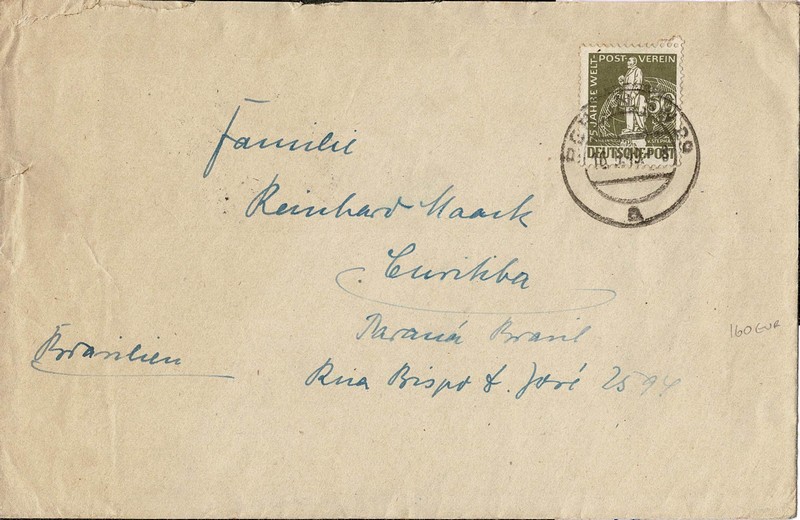 75 JAHRE WELT-POST-VEREIN
50
DEUTSCHE POST
a
Familie
Reinhard Maack
Curitiba
Paraná Brasil
Brasilien
Rua Bispo D. José 2594
160 EUR